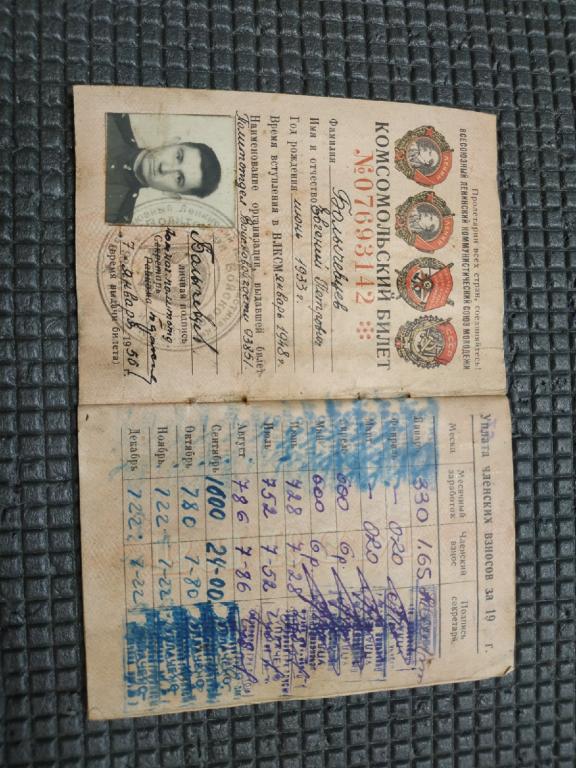 Пролетарии всех стран, соединяйтесь!
ВСЕСОЮЗНЫЙ ЛЕНИНСКИЙ КОММУНИСТИЧЕСКИЙ СОЮЗ МОЛОДЕЖИ
КОМСОМОЛЬСКИЙ БИЛЕТ
№ 07693142
Фамилия
Имя и отчество Евгений
Год рождения июнь 1933 г.
Время вступления в ВЛКСМ январь 1948 г.
Наименование организации, выдавшей билет
Политотдел Войсковой части 03851.
личная подпись
7 января 1956 г.
(время выдачи билета)
Уплата членских взносов за 19 г.
Месяц Месячный заработок Членский взнос Подпись секретаря
Январь 330 1.65
Февраль - 020
Март - 020
Апрель 600 6р.
Май 600 6р.
Июнь 728 7-28
Июль 752 7-52
Август 786 7-86
Сентябрь 1000 24-00
Октябрь 780 7-80
Ноябрь 722 7-22
Декабрь 722 7-22